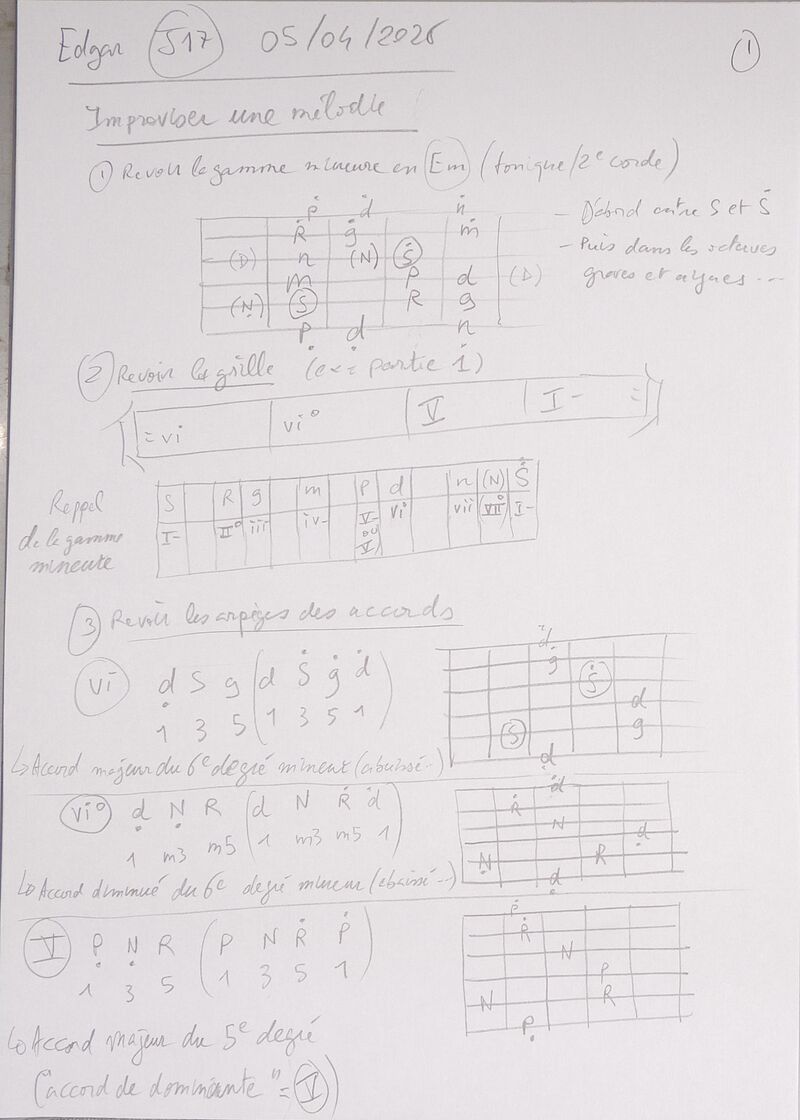 Edgar S17 05/04/2026 ①
Improviser une mélodie
① Revoir la gamme mineure en Em (tonique/2e corde)
- D'abord entre S et Ṡ
- Puis dans les octaves
graves et aigues ...
p d n
R g m
(D) n (N) S
m P d (D)
(N) S R g
P d n
② Revoir la grille (ex: partie 1)
= vi vi° V I- =
Rappel
de la gamme
mineure
S R g m P d n (N) Ṡ
I- II° iii iv- V- ou V vi vii (VII°) I-
③ Revoir les arpèges des accords
vi d S g (d Ṡ ġ ḋ
1 3 5 1 3 5 1)
d
g
S
d
S g
d
↳ Accord majeur du 6e degré mineur (abaissé..)
vi° d N R (d N Ṙ ḋ
1 m3 m5 1 m3 m5 1)
d
R
N
d
N R
d
↳ Accord diminué du 6e degré mineur (abaissé..)
V P N R (P N Ṙ Ṗ
1 3 5 1 3 5 1)
P
R
N
P
N R
P
↳ Accord majeur du 5e degré
("accord de dominante" = V)